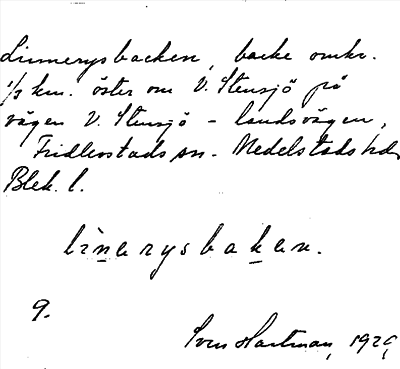 Linnerysbacken, backe omkr.
1/2 km. öster om V. Stensjö på
vägen V. Stensjö - landsvägen,
Fridlevstads sn. Medelstads hd.
Blek. l.
linerysbaken.
9.
Sven Hartman, 1929